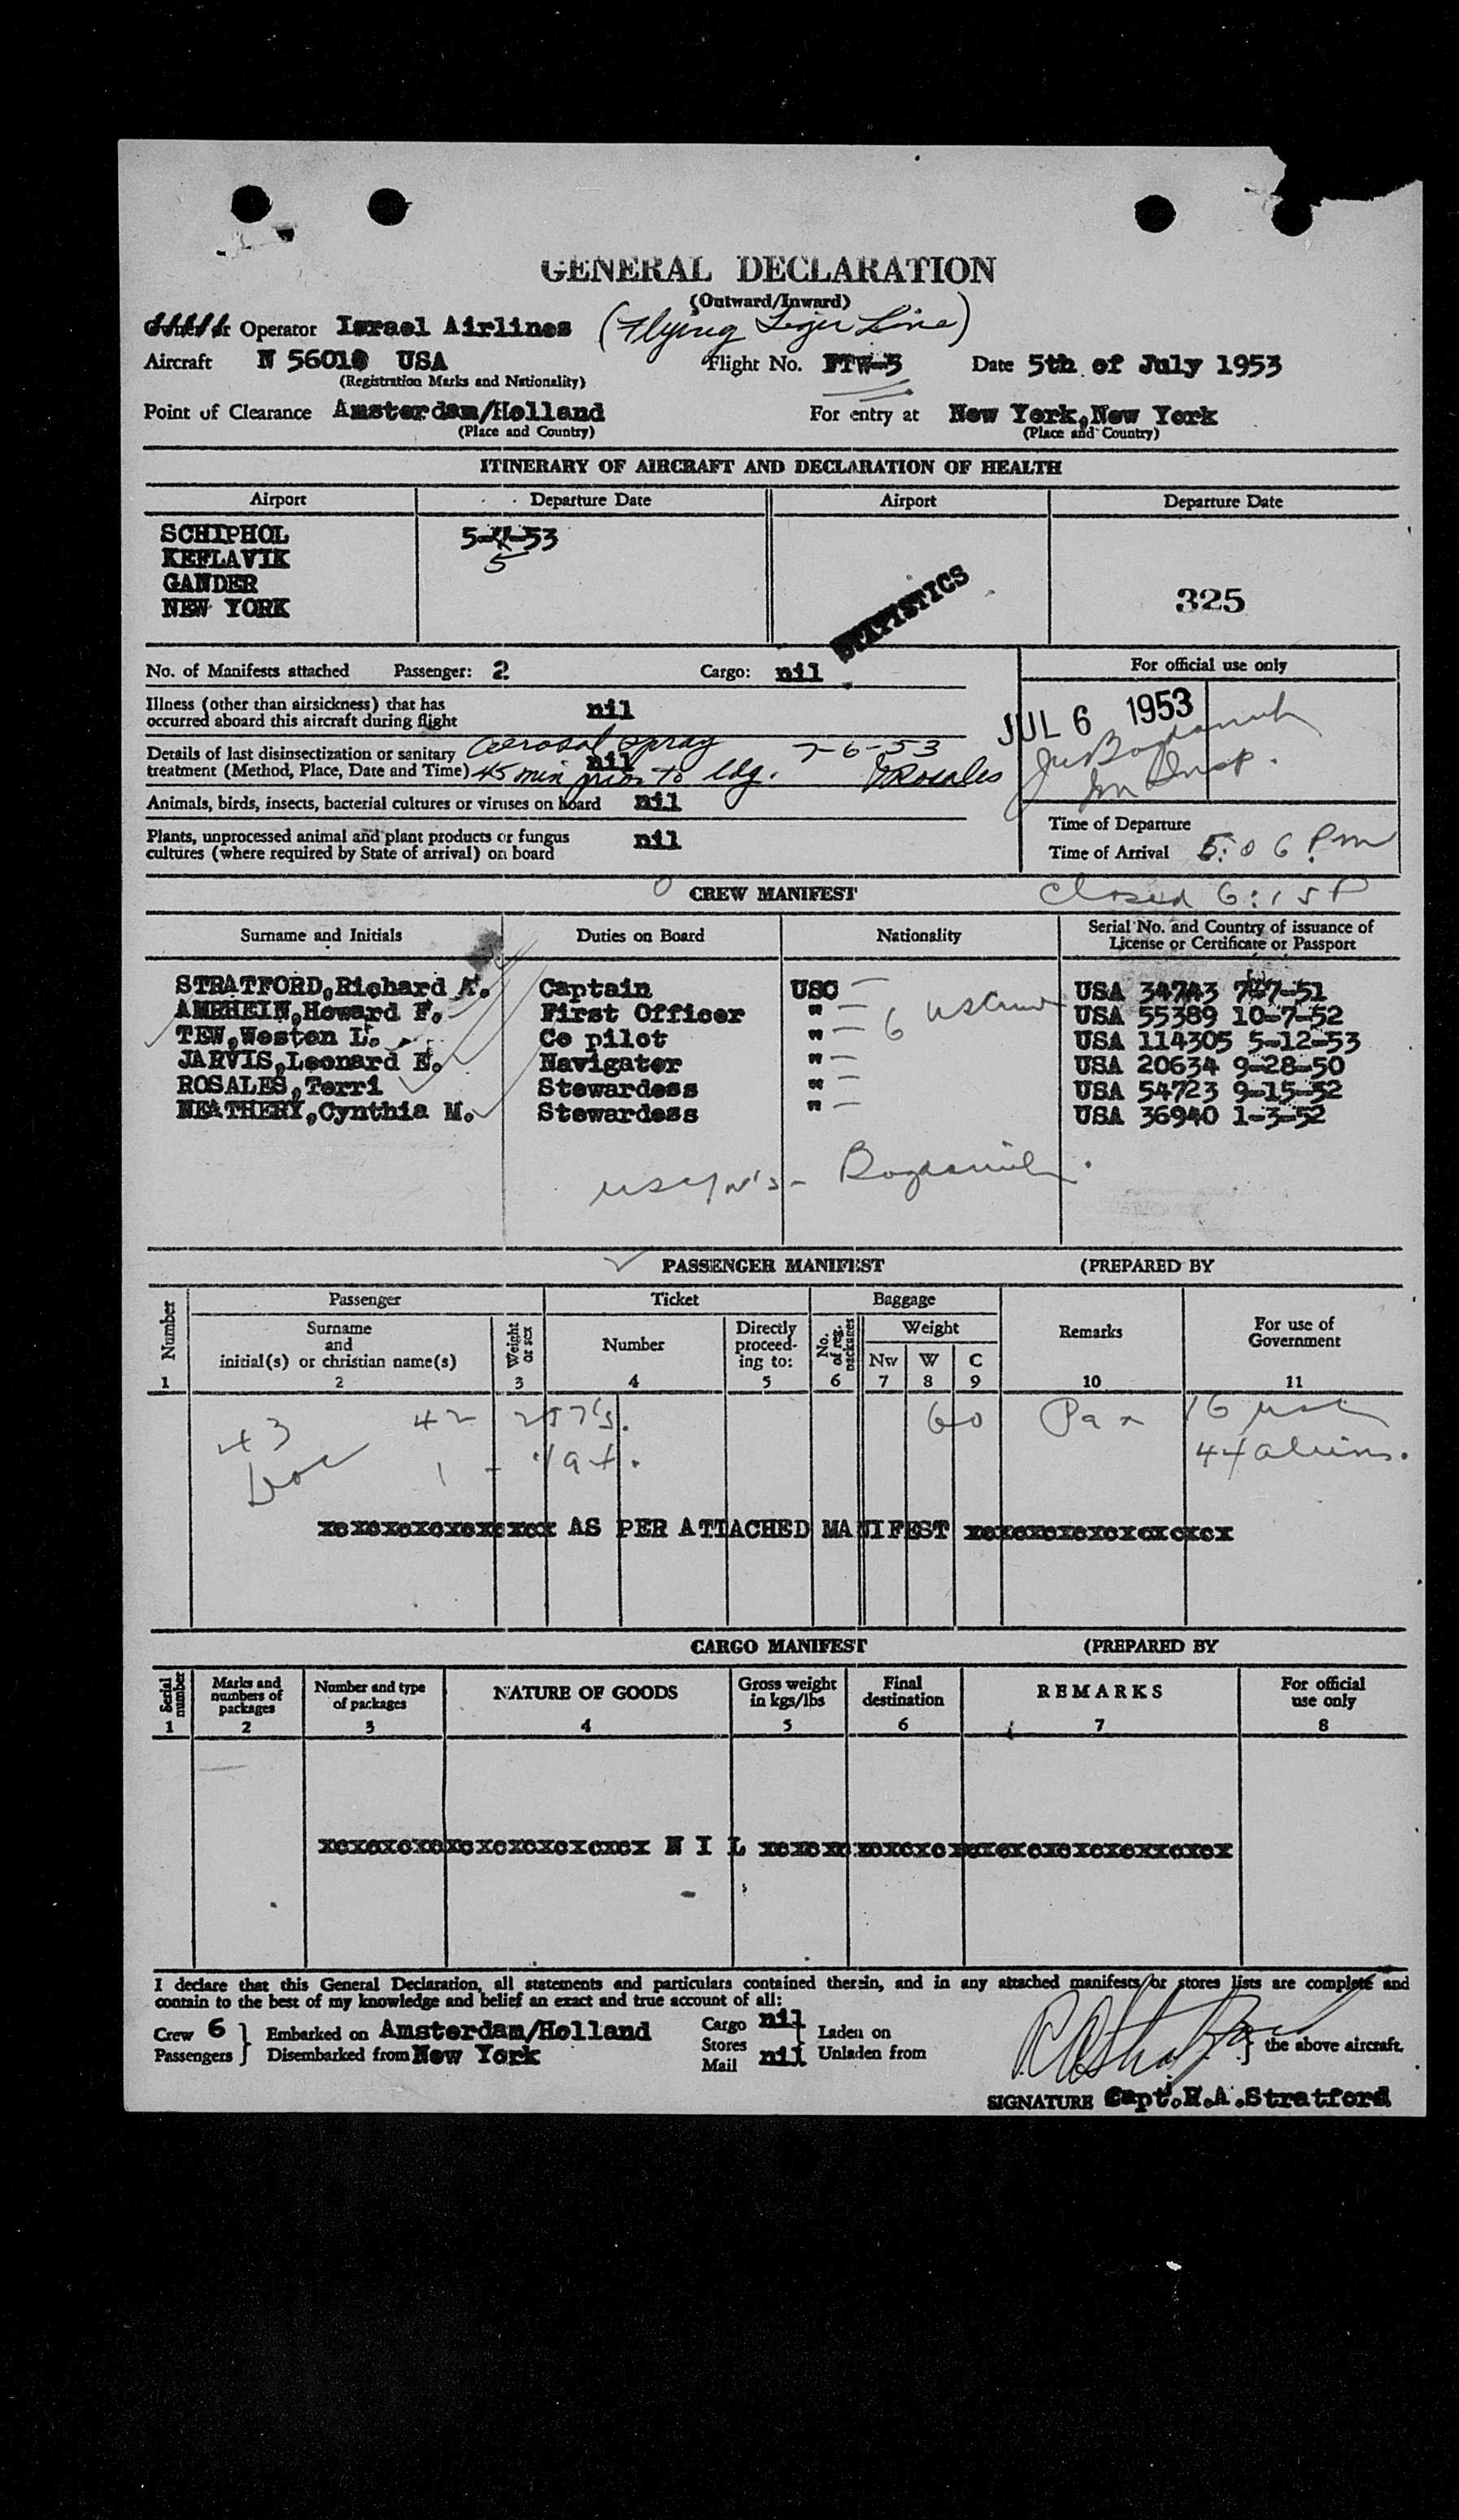 GENERAL DECLARATION
(Outward/Inward)
Operator Israel Airlines (Flying Tiger Line)
Aircraft N 56010 USA Flight No. FTW-5 Date 5th of July 1953
(Registration Marks and Nationality)
Point of Clearance Amsterdam/Holland For entry at New York,New York
(Place and Country) (Place and Country)
ITINERARY OF AIRCRAFT AND DECLARATION OF HEALTH
Airport Departure Date Airport Departure Date
SCHIPHOL 5- -53
5
KEFLAVIK
GANDER
NEW YORK 325
STATISTICS
No. of Manifests attached Passenger: 2 Cargo: nil For official use only
Illness (other than airsickness) that has
occurred aboard this aircraft during flight nil JUL 6 1953
Details of last disinsectization or sanitary Aerosol spray 7-6-53
treatment (Method, Place, Date and Time) nil 45 min prior to ldg. TRosales
Imm Insp.
Animals, birds, insects, bacterial cultures or viruses on board nil
Time of Departure
Plants, unprocessed animal and plant products or fungus
cultures (where required by State of arrival) on board nil
Time of Arrival 5:06 Pm
CREW MANIFEST closed 6:15P
Surname and Initials Duties on Board Nationality Serial No. and Country of issuance of
License or Certificate or Passport
STRATFORD,Richard A. Captain USC USA 34743 7-7-51
AMRHEIN,Howard F. First Officer " USA 55389 10-7-52
TEW,Weston L. Co pilot " 6 USA 114305 5-12-53
JARVIS,Leonard E. Navigator " USA 20634 9-28-50
ROSALES,Terri Stewardess " USA 54723 9-15-52
NEATHERY,Cynthia M. Stewardess " USA 36940 1-3-52
PASSENGER MANIFEST (PREPARED BY
Number Passenger Ticket Baggage Remarks For use of
Government
Surname
and
initial(s) or christian name(s) Weight
or sex Number Directly
proceed-
ing to: No.
of reg.
packages Weight
Nw W C
1 2 3 4 5 6 7 8 9 10 11
43 42 257's. 60 Pax 16 usc
1 - 44 aliens.
xcxcxcxcxcxcxcx AS PER ATTACHED MANIFEST xcxcxcxcxcxcxcxcx
CARGO MANIFEST (PREPARED BY
Serial
number Marks and
numbers of
packages Number and type
of packages NATURE OF GOODS Gross weight
in kgs/lbs Final
destination REMARKS For official
use only
1 2 3 4 5 6 7 8
xcxcxcxcxcxcxcxcxcxcx N I L xcxcxcxcxcxcxcxcxcxcxcxcxcxxcxcx
I declare that this General Declaration, all statements and particulars contained therein, and in any attached manifests/or stores lists are complete and
contain to the best of my knowledge and belief an exact and true account of all:
Crew 6 Embarked on Amsterdam/Holland Cargo nil Laden on
Passengers Disembarked from New York Stores Unladen from the above aircraft.
Mail nil
RAStratford
SIGNATURE Capt.R.A.Stratford